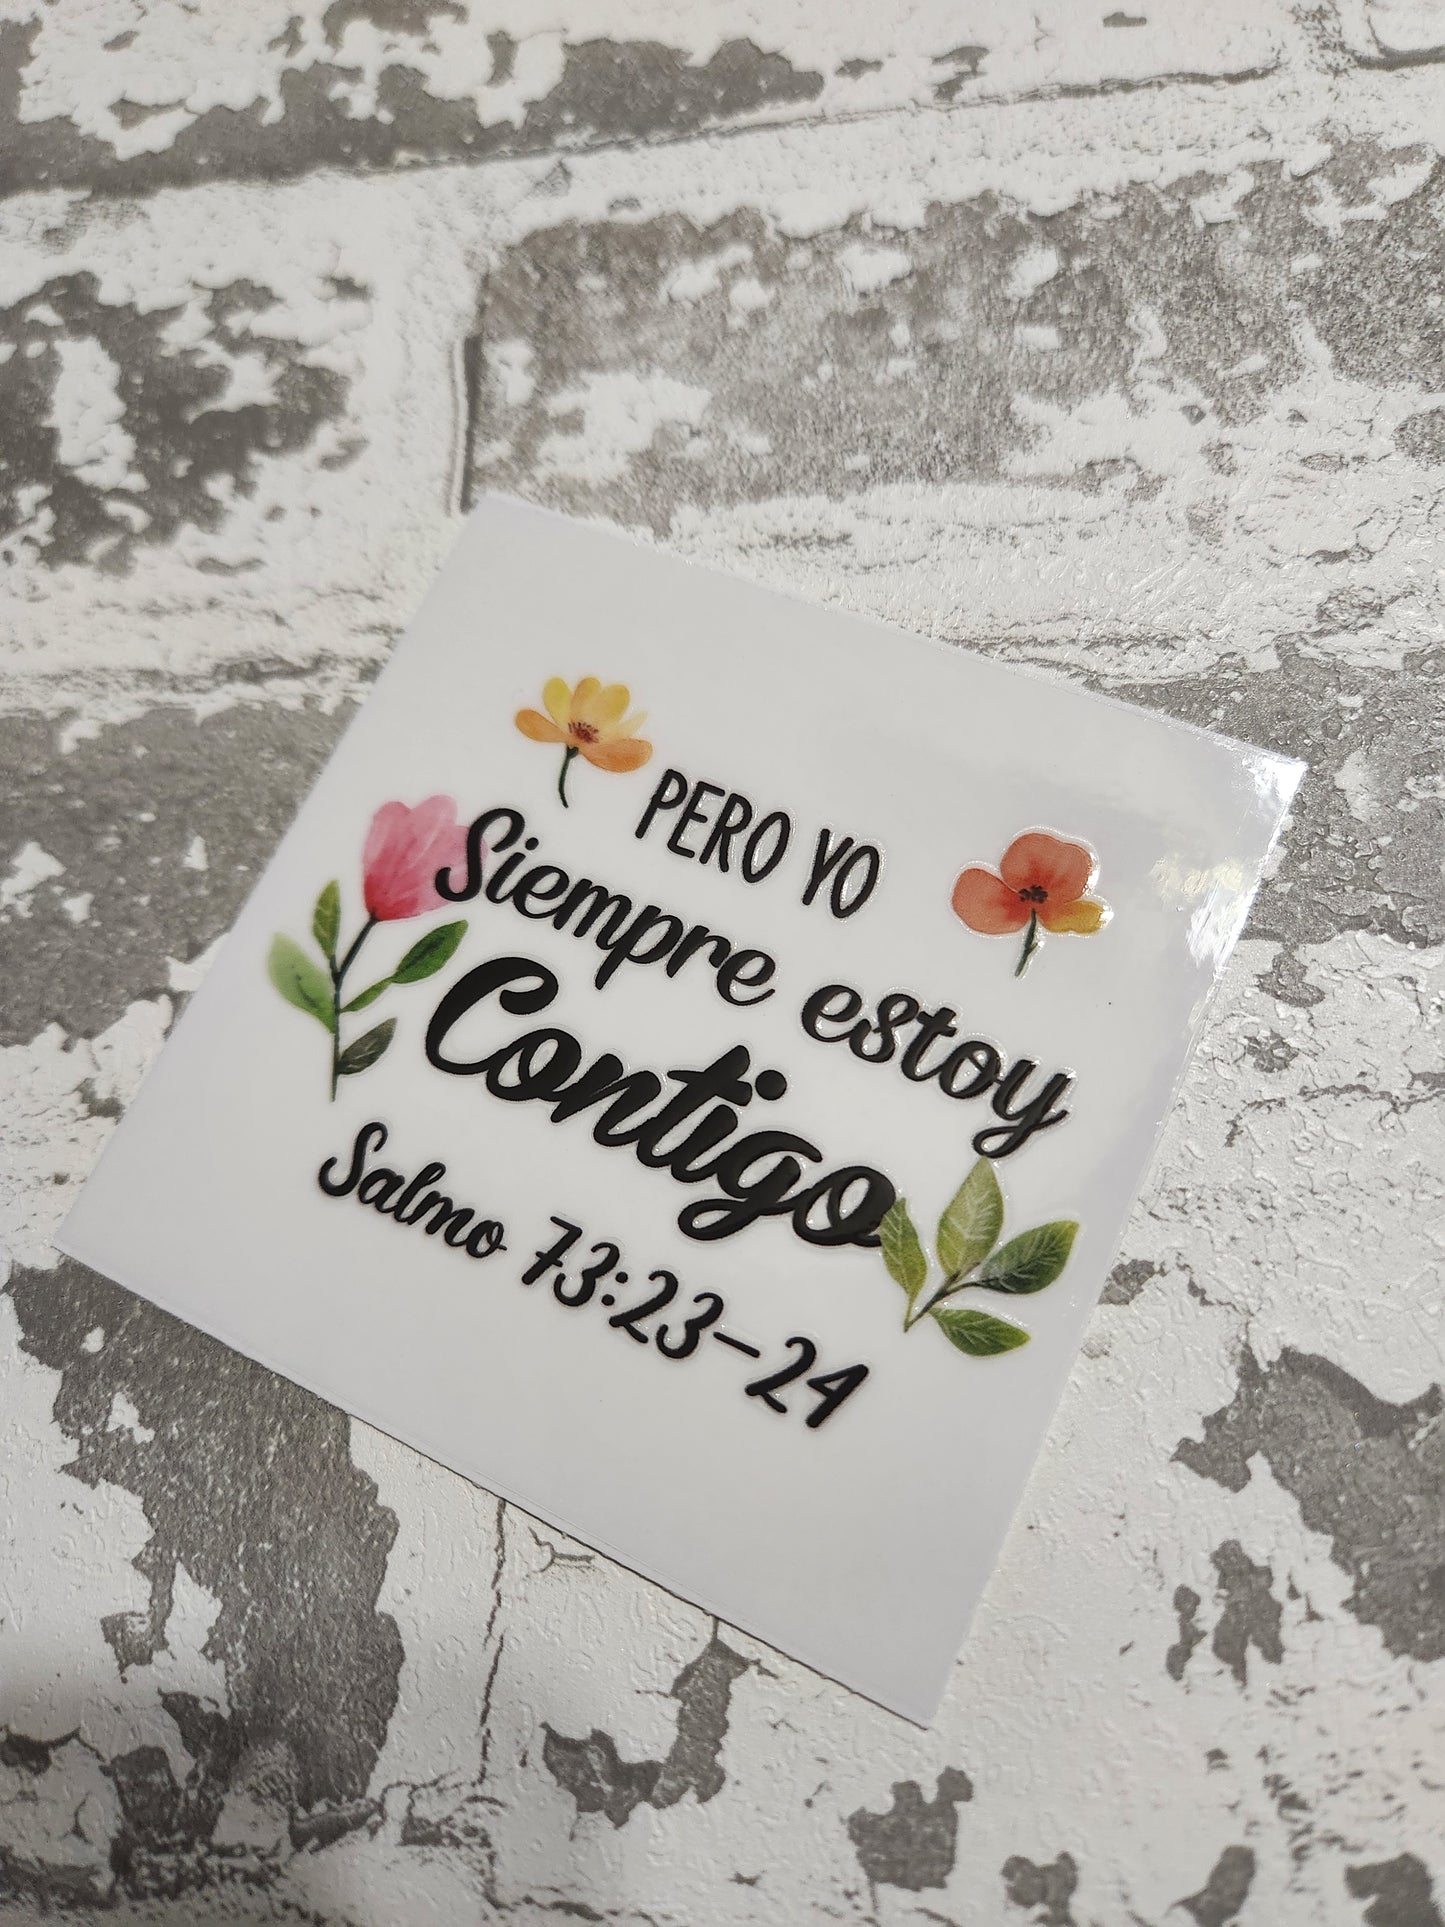 PERO YO
Siempre estoy
Contigo
Salmo 73:23-24